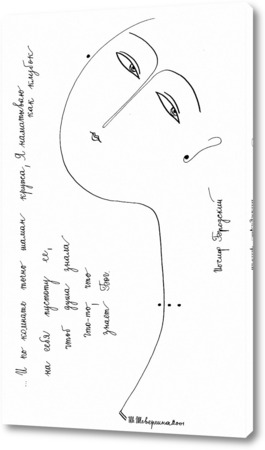 ...И по комнате точно шаман кружа, Я наматываю
как клубок
на себя пустоту ее,
чтоб душа знала
что-то что
знает! Бог
Иосиф Бродский